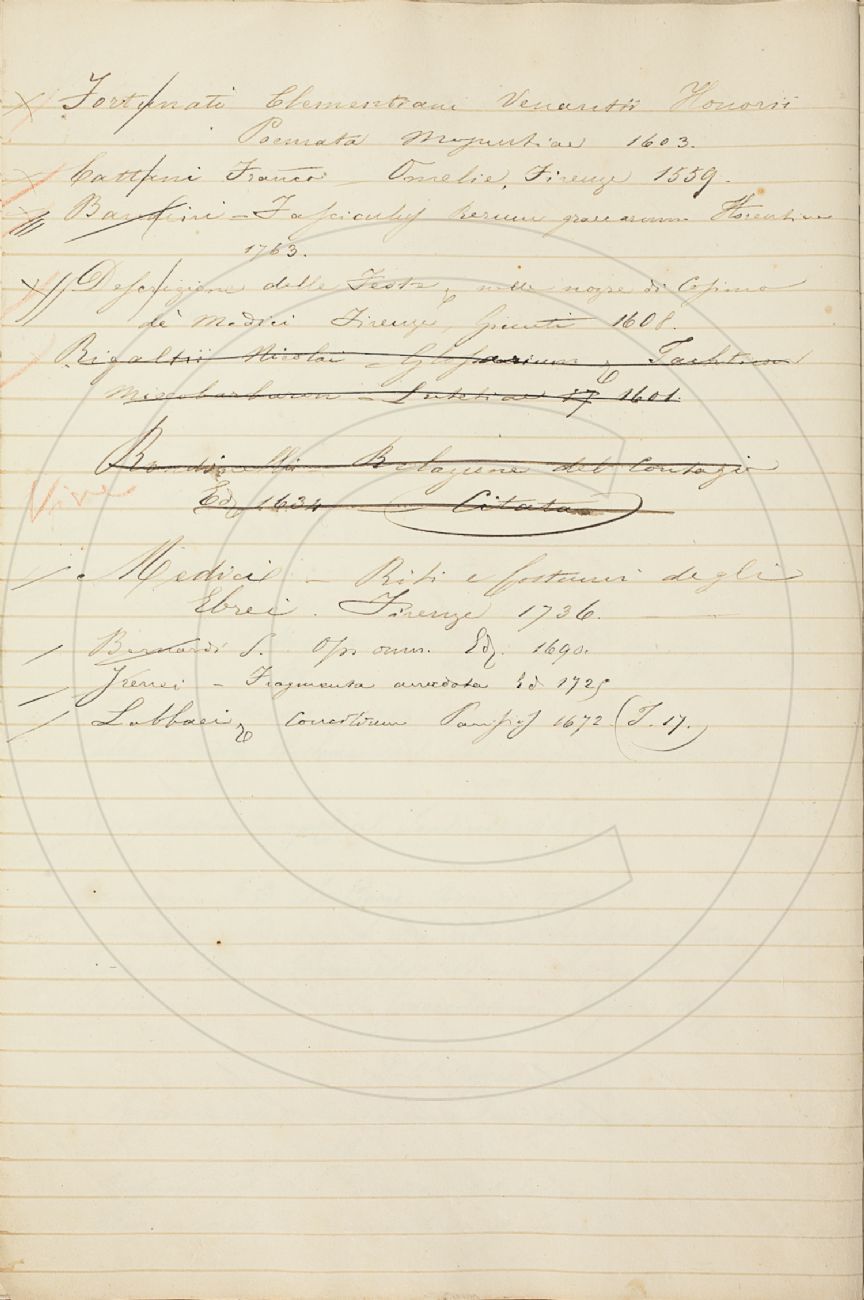 Fortunati Clementiani Venantii Honorii
Poemata Moguntiae 1603.
Cattani Franco – Omelie, Firenze 1559.
Bandini – Fasciculus Rerum graecarum Florentiae
1763.
Descrizione delle Feste nelle nozze di Cosimo
de' Medici Firenze, Giunti 1608.
Rigaltii Nicolai – Glossarium
Mixobarbaron – Lutetiae 1601.
Rondinelli – Relazione del Contagio
Ed. 1634 Citata
Medici – Riti e Costumi degli
Ebrei. Firenze 1736.
Bernardi S. Op. omn. Ed. 1690.
Irenei – Fragmenta anecdota Ed. 1725
Labbaei Parisiis 1672 (T. 17.)